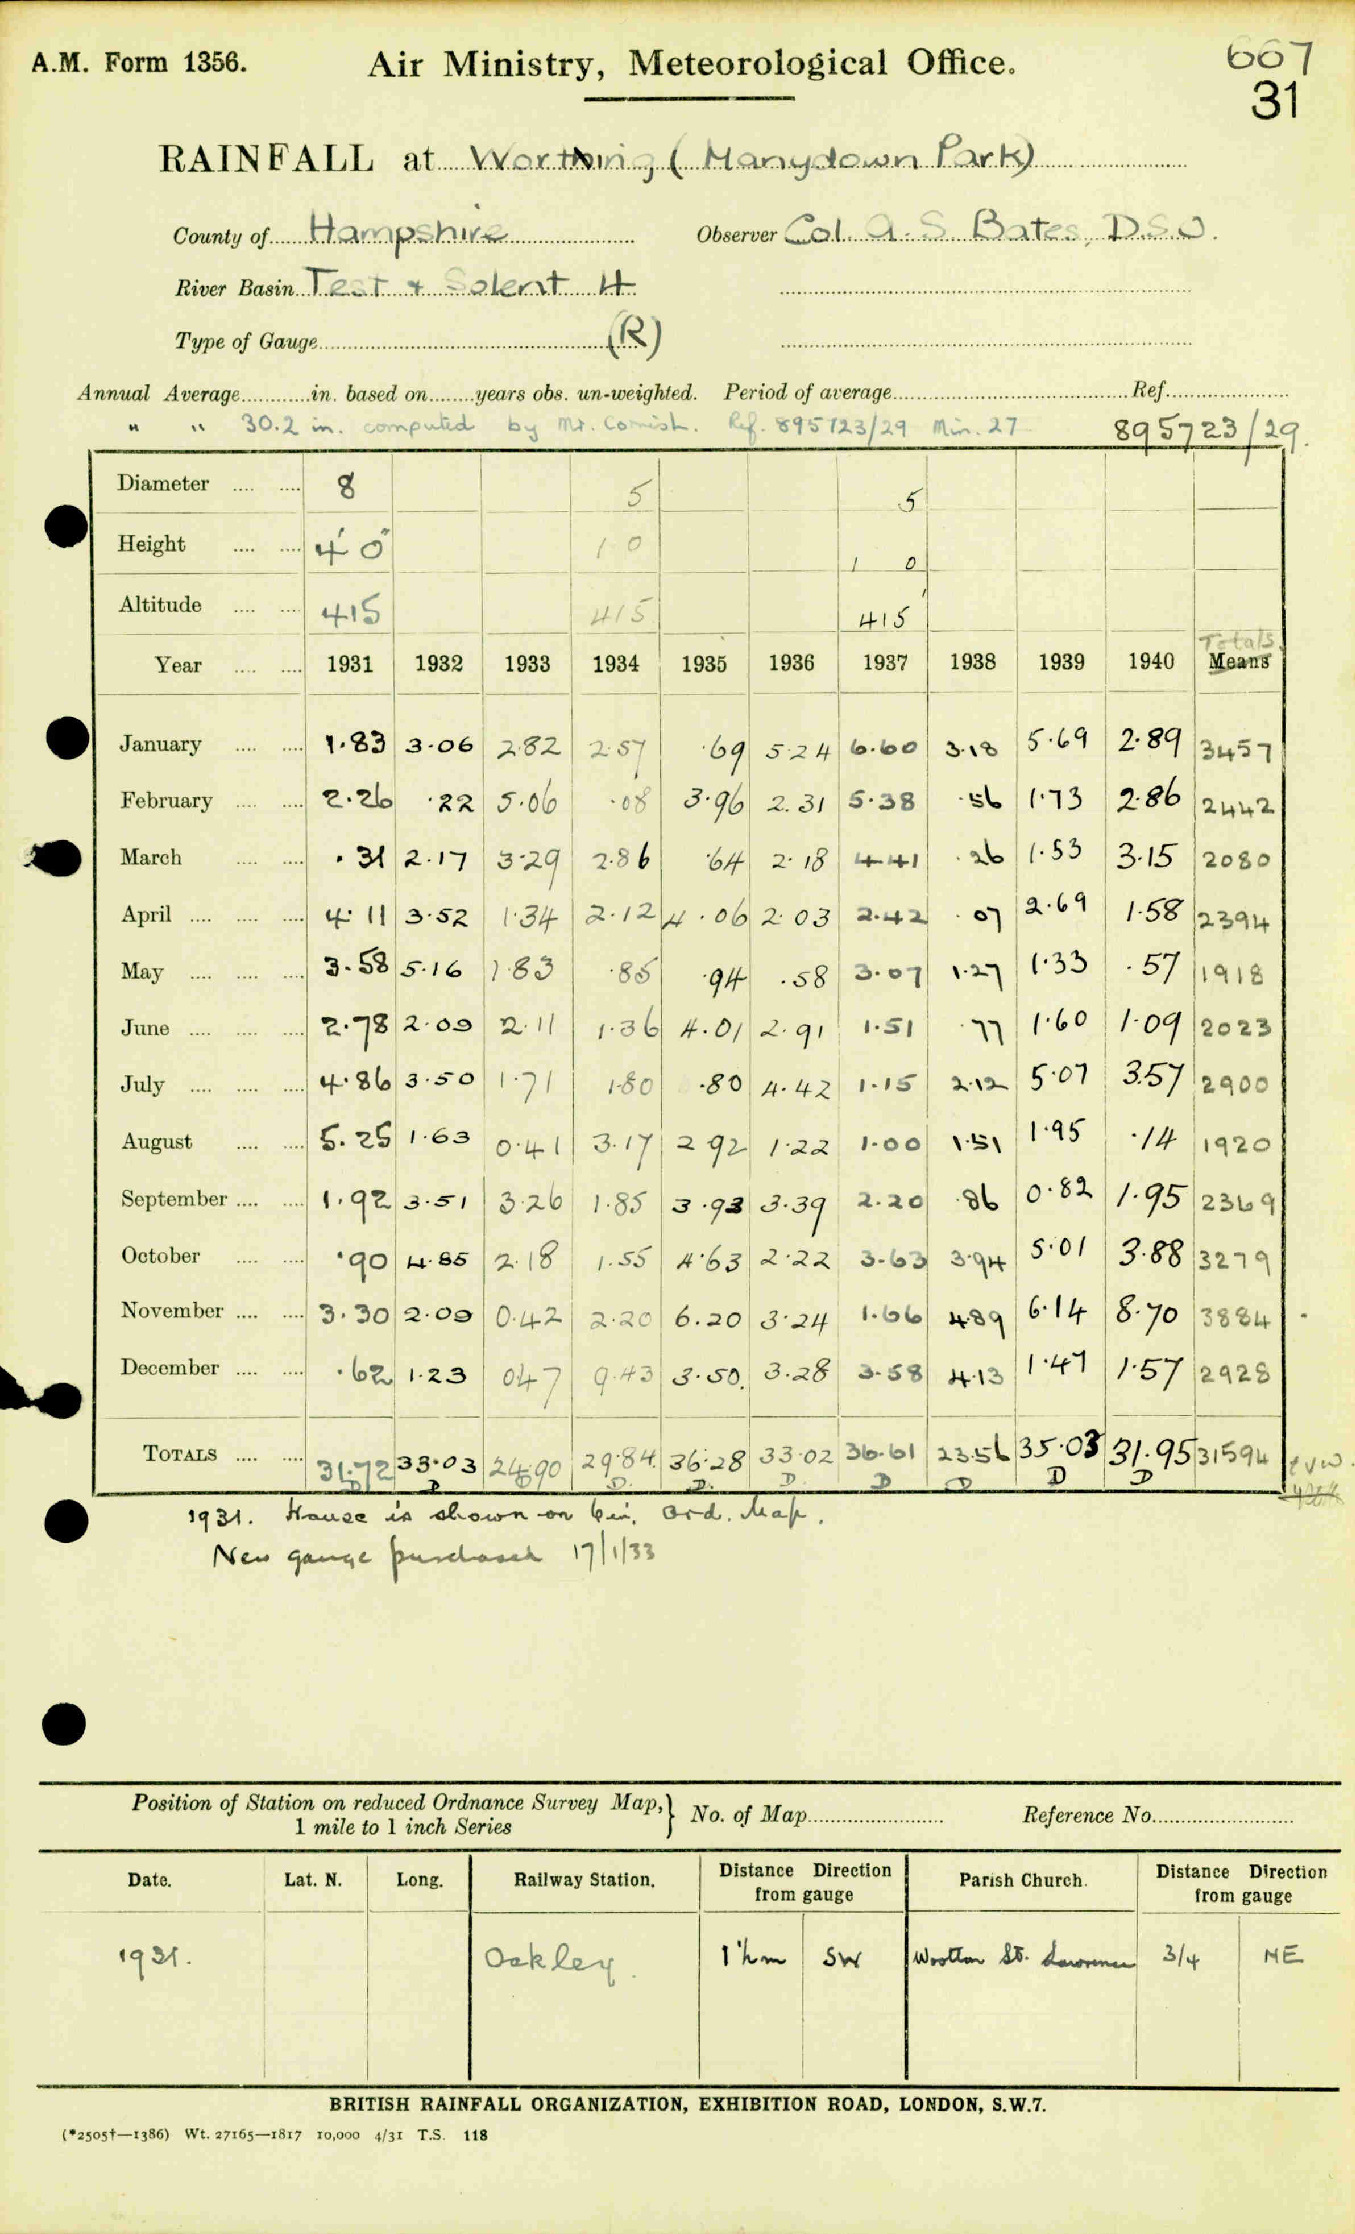 A.M. Form 1356. Air Ministry, Meteorological Office. 667
31
RAINFALL at Worthing (Manydown Park)
County of Hampshire Observer Col. A. S. Bates, D.S.O.
River Basin Test + Solent H
Type of Gauge (R)
Annual Average in. based on years obs. un-weighted. Period of average Ref.
" " 30.2 in. computed by Mr. Cornish. Ref. 895723/29 Min. 27 895723/29.
Diameter 8 5 5
Height 4' 0" 1 0 1 0
Altitude 415 415 415'
Totals
Year 1931 1932 1933 1934 1935 1936 1937 1938 1939 1940 Means
January 1.83 3.06 2.82 2.57 .69 5.24 6.60 3.18 5.69 2.89 3457
February 2.26 .22 5.06 .08 3.96 2.31 5.38 .56 1.73 2.86 2442
March .31 2.17 3.29 2.86 .64 2.18 4.41 .26 1.53 3.15 2080
April 4.11 3.52 1.34 2.12 4.06 2.03 2.42 .07 2.69 1.58 2394
May 3.58 5.16 1.83 .85 .94 .58 3.07 1.27 1.33 .57 1918
June 2.78 2.09 2.11 1.36 4.01 2.91 1.51 .77 1.60 1.09 2023
July 4.86 3.50 1.71 1.80 .80 4.42 1.15 2.12 5.07 3.57 2900
August 5.25 1.63 0.41 3.17 2.92 1.22 1.00 1.51 1.95 .14 1920
September 1.92 3.51 3.26 1.85 3.93 3.39 2.20 .86 0.82 1.95 2369
October .90 4.85 2.18 1.55 4.63 2.22 3.63 3.94 5.01 3.88 3279
November 3.30 2.09 0.42 2.20 6.20 3.24 1.66 4.89 6.14 8.70 3884
December .62 1.23 0.47 9.43 3.50 3.28 3.58 4.13 1.47 1.57 2928
TOTALS 31.72 33.03 24.90 29.84 36.28 33.02 36.61 23.56 35.03 31.95 31594
D D D D D D D D D D
1931. House is shown on 6in. Ord. Map.
New gauge purchased 17/1/33
Position of Station on reduced Ordnance Survey Map, 1 mile to 1 inch Series } No. of Map Reference No.
Date. Lat. N. Long. Railway Station. Distance Direction from gauge Parish Church. Distance Direction from gauge
1931. Oakley. 1½m SW Wootton St. Lawrence 3/4 NE
BRITISH RAINFALL ORGANIZATION, EXHIBITION ROAD, LONDON, S.W.7.
(*2505†—1386) Wt. 27165—1817 10,000 4/31 T.S. 118